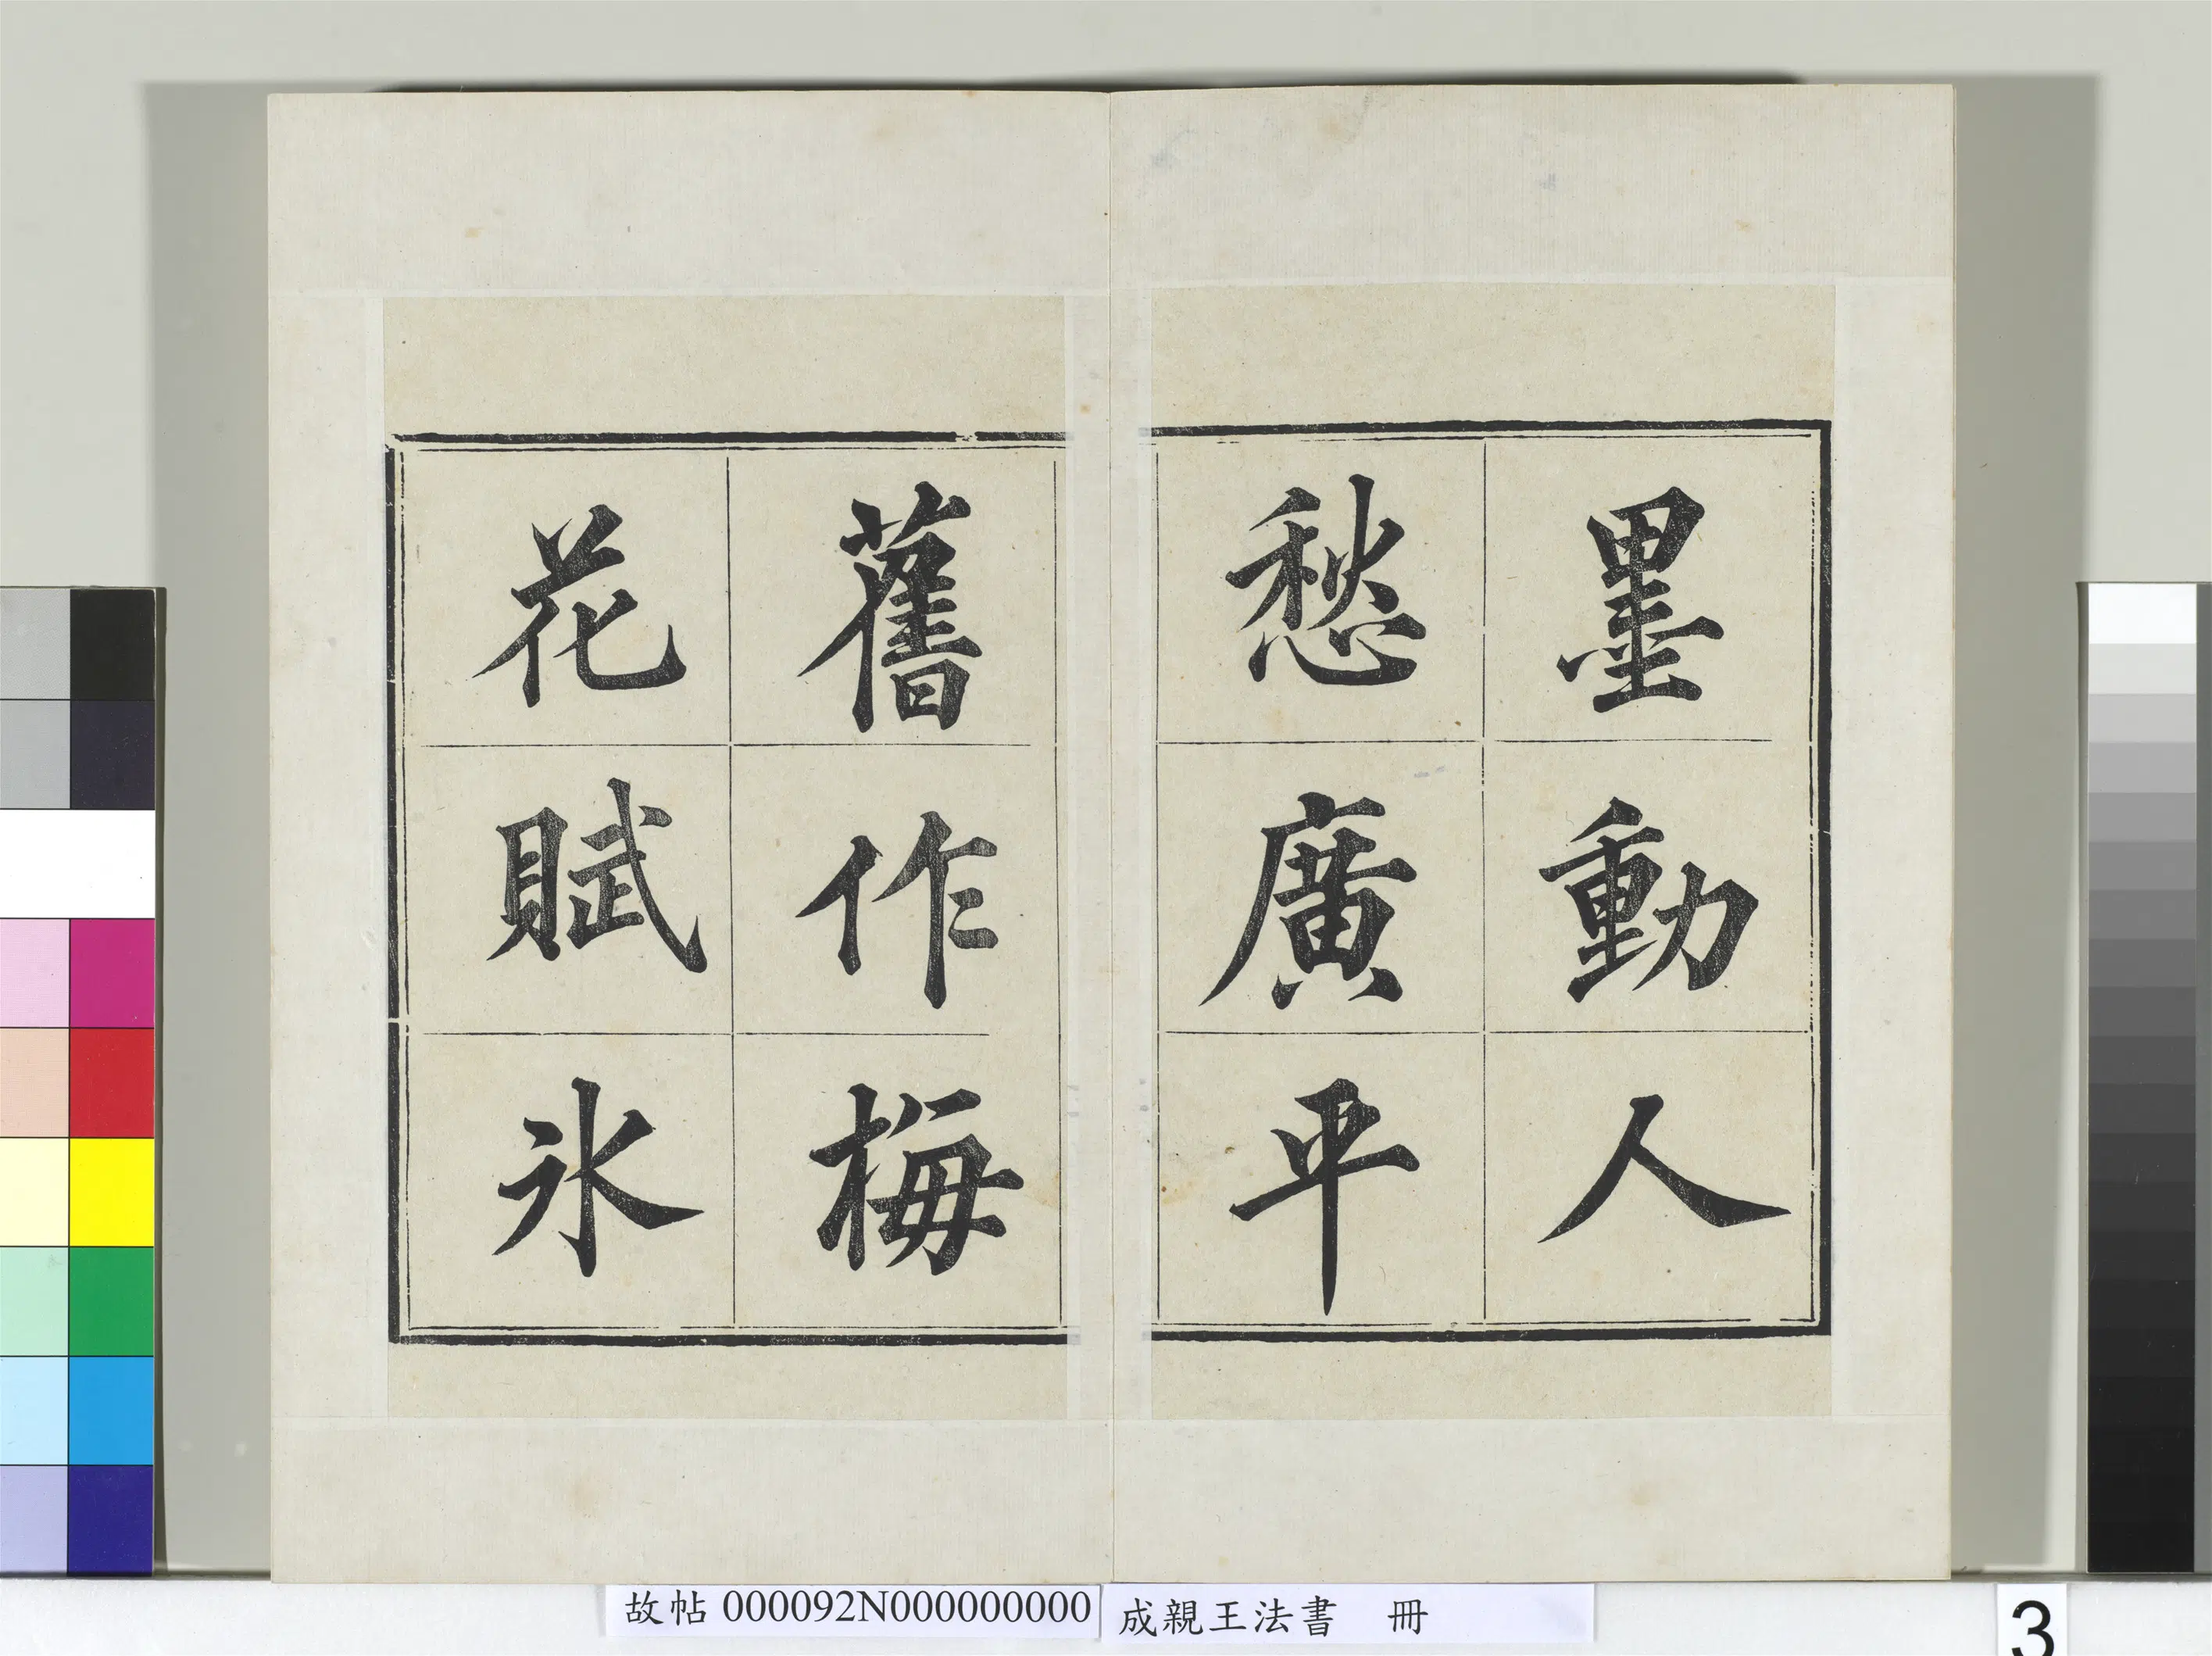 墨動人
愁廣平
舊作梅
花賦冰
故帖 000092N000000000
成親王法書 冊
3